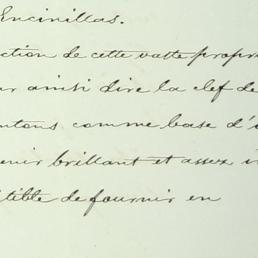 Encinillas.
ction de cette vaste propri
ar ainsi dire la clef de
ntons comme base d'
enir brillant et assez i
tible de fournir en